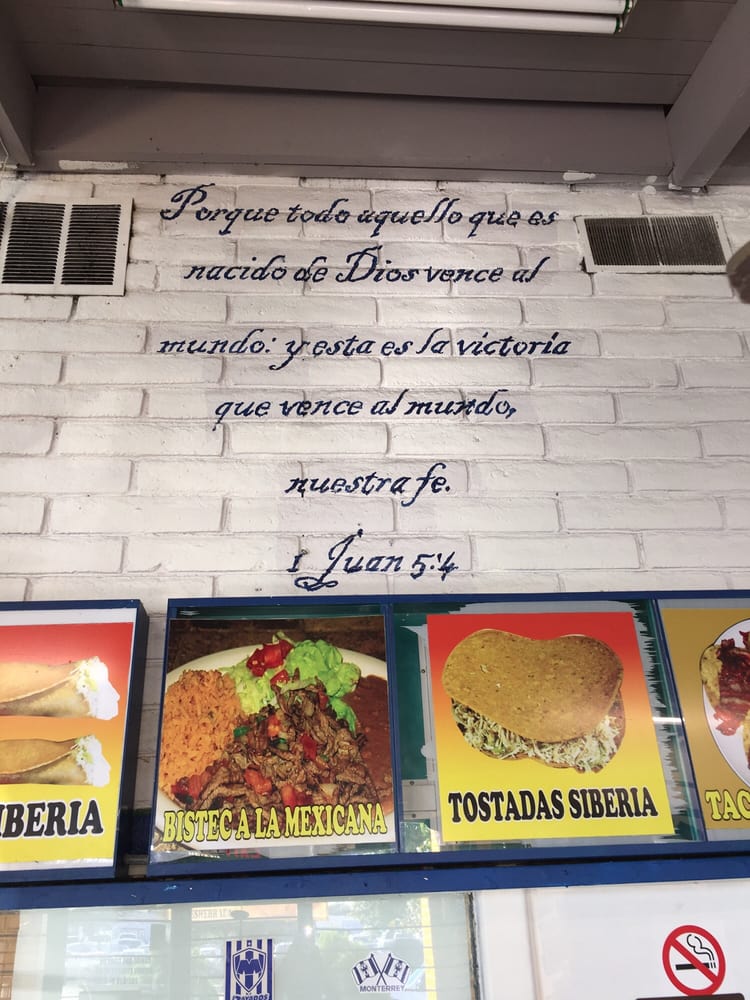 Porque todo aquello que es
nacido de Dios vence al
mundo: y esta es la victoria
que vence al mundo,
nuestra fe.
1 Juan 5:4
IBERIA
BISTEC A LA MEXICANA
TOSTADAS SIBERIA
TAC
RAYADOS
MONTERREY